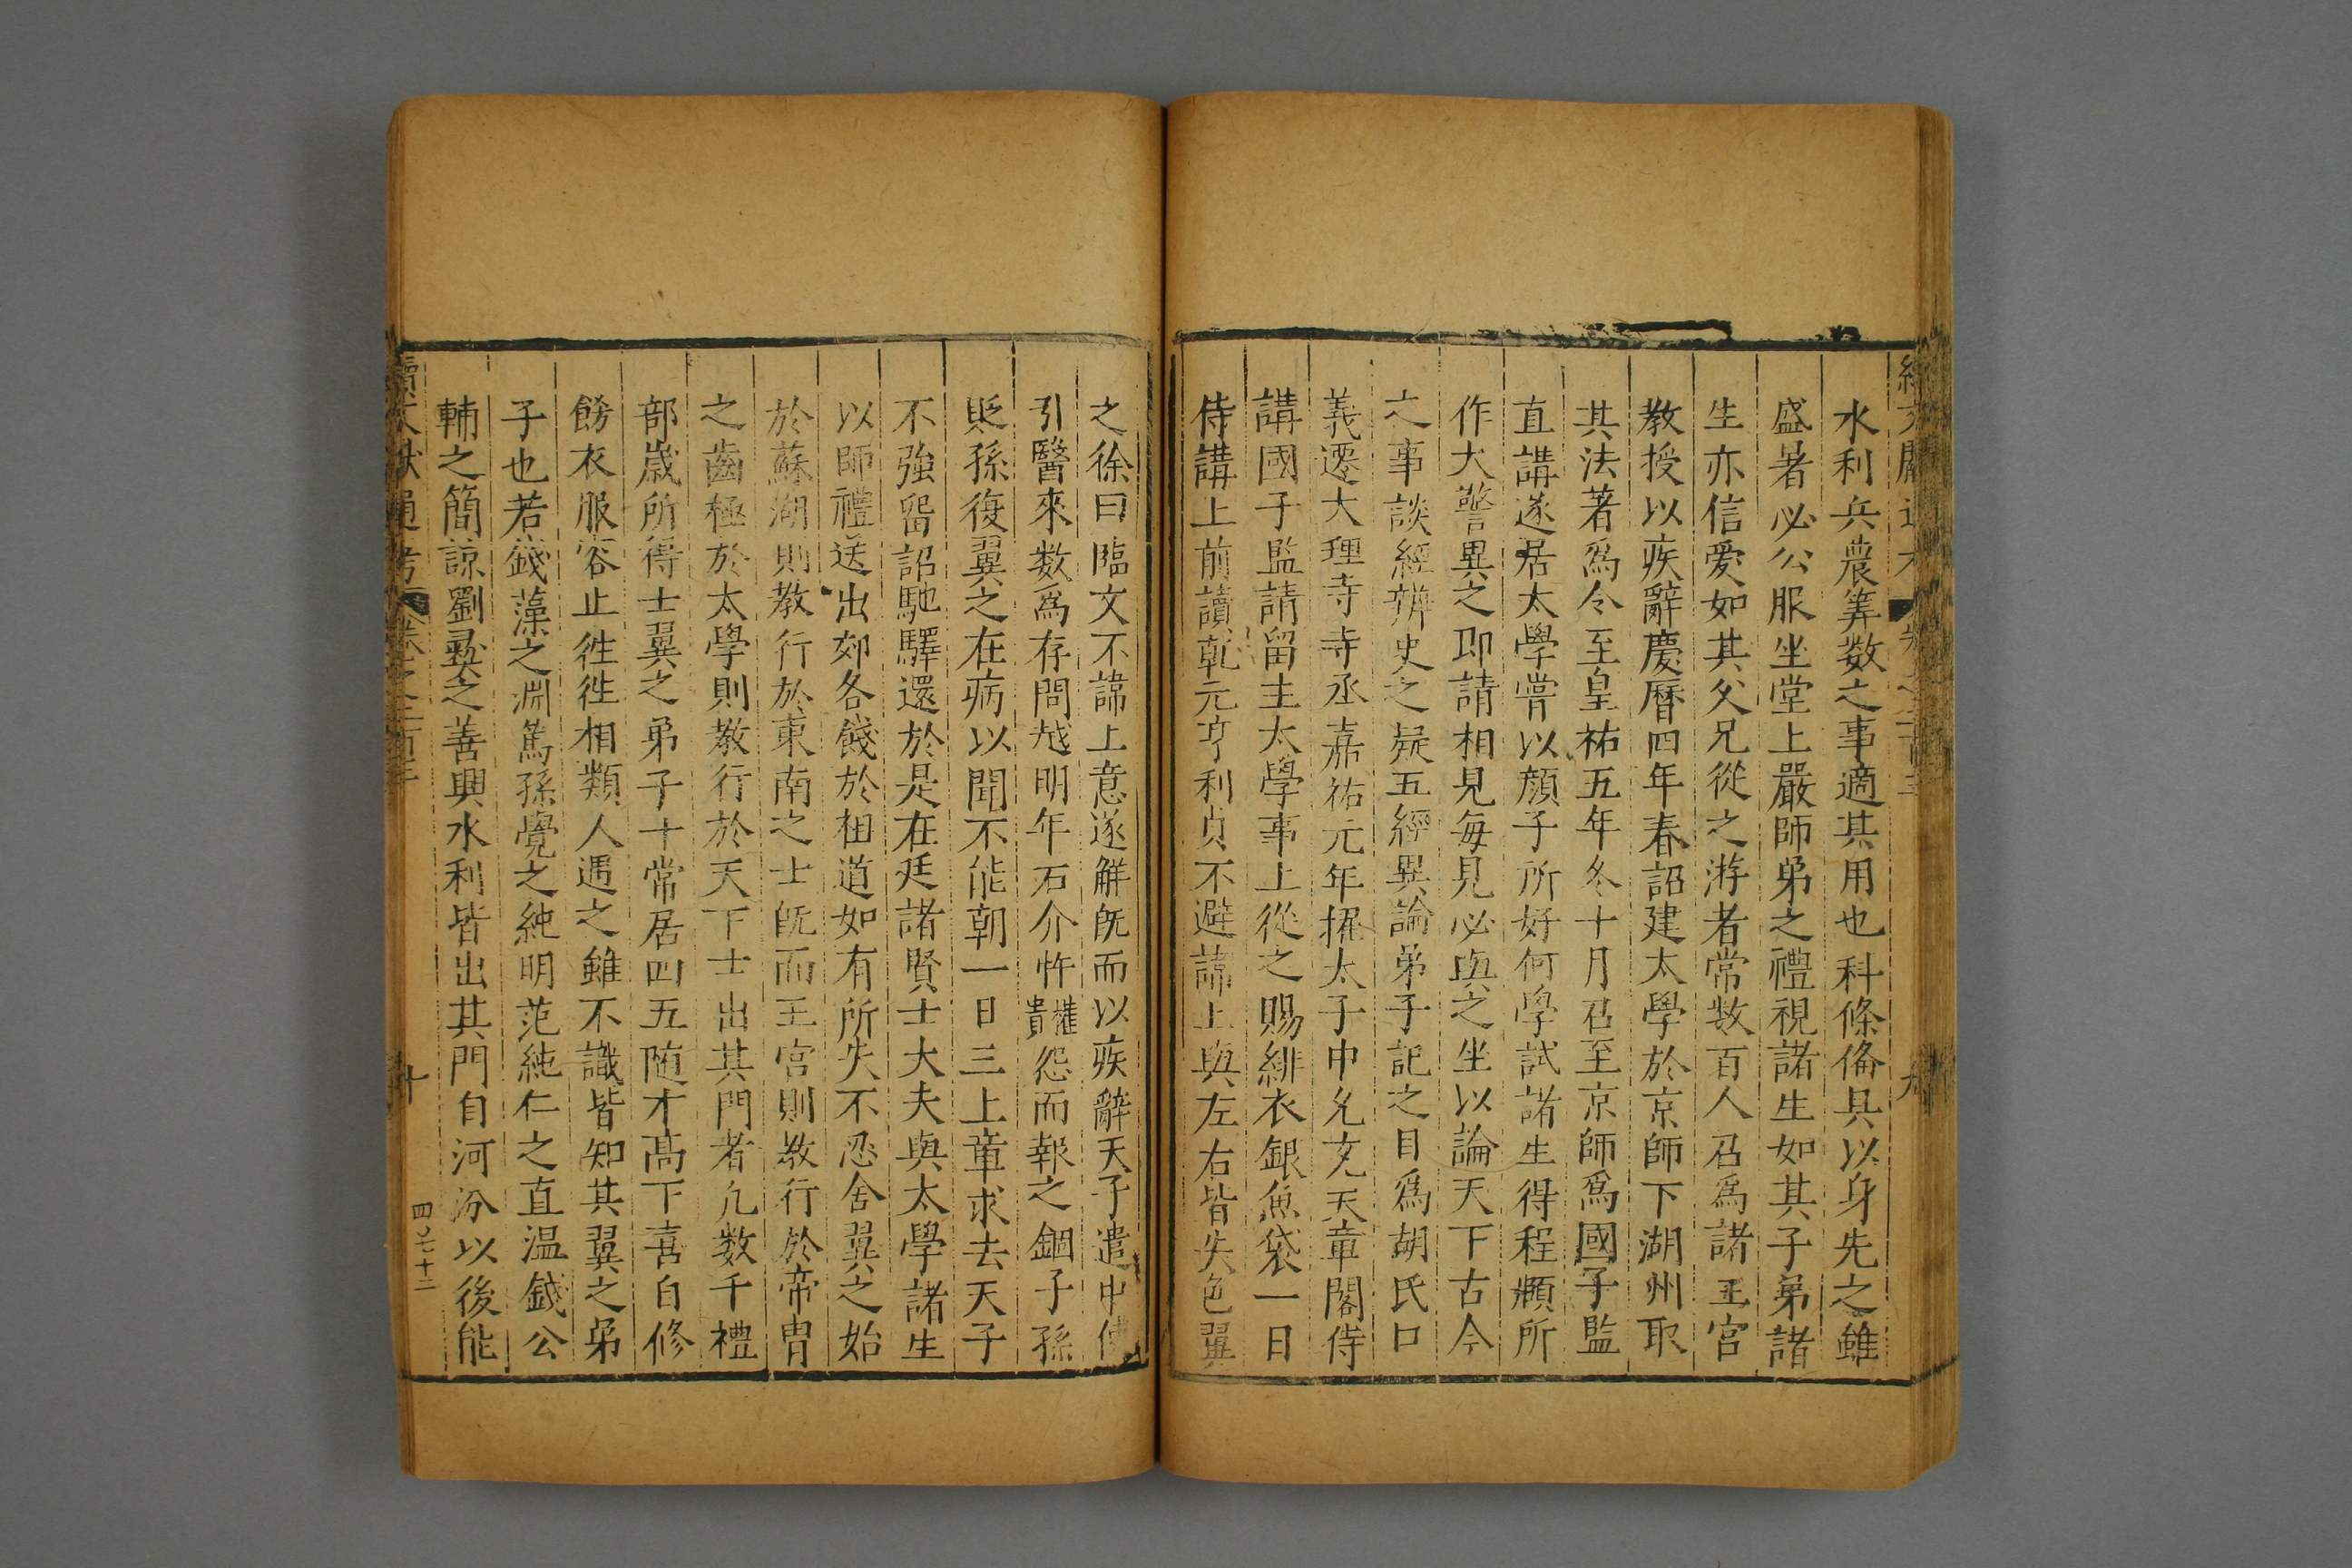 水利兵農筭数之事適其用也科條俻具以身先之雖
盛暑必公服坐堂上嚴師弟之禮視諸生如其子弟諸
生亦信爱如其父兄從之游者常数百人召爲諸王宫
教授以疾辭慶曆四年春詔建太學於京師下湖州取
其法著爲令至皇祐五年冬十月召至京師爲國子監
直講遂居太學嘗以顔子所好何學試諸生得程頤所
作大警異之即請相見每見必與之坐以論天下古今
之事談經辨史之疑五經異論弟子記之目爲胡氏口
義遷大理寺寺丞嘉祐元年擢太子中允充天章閣侍
講國子監請留主太學事上從之賜緋衣銀魚袋一日
侍講上前讀乾元亨利貞不避諱上與左右皆失色翼
之徐曰臨文不諱上意遂解旣而以疾辭天子遣中使
引醫來数爲存問越明年石介忤權貴怨而報之錮子孫
貶孫復翼之在病以聞不能朝一日三上章求去天子
不強畱詔馳驛還於是在廷諸賢士大夫與太學諸生
以師禮送出郊各餞於祖道如有所失不忍舍翼之始
於蘇湖則教行於東南之士旣而王宫則教行於帝胄
之齒極於太學則教行於天下士出其門者凢数千禮
部歲所得士翼之弟子十常居四五随才髙下喜自修
餙衣服容止徃徃相類人遇之雖不識皆知其翼之弟
子也若錢藻之淵篤孫覺之純明范純仁之直温錢公
輔之簡諒劉彞之善興水利皆出其門自河汾以後能
續文獻通考 卷之二百三 十
四〇七十二